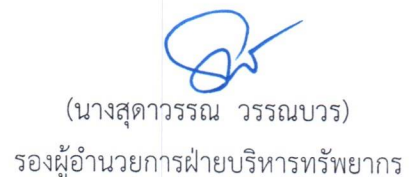 (นางสุดาวรรณ วรรณบวร)
รองผู้อำนวยการฝ่ายบริหารทรัพยากร